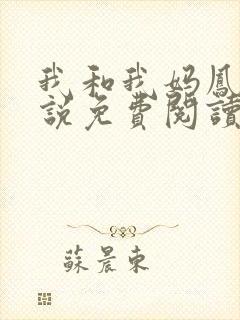 我和我妈鳳
説免費閱讀
蘇晨東